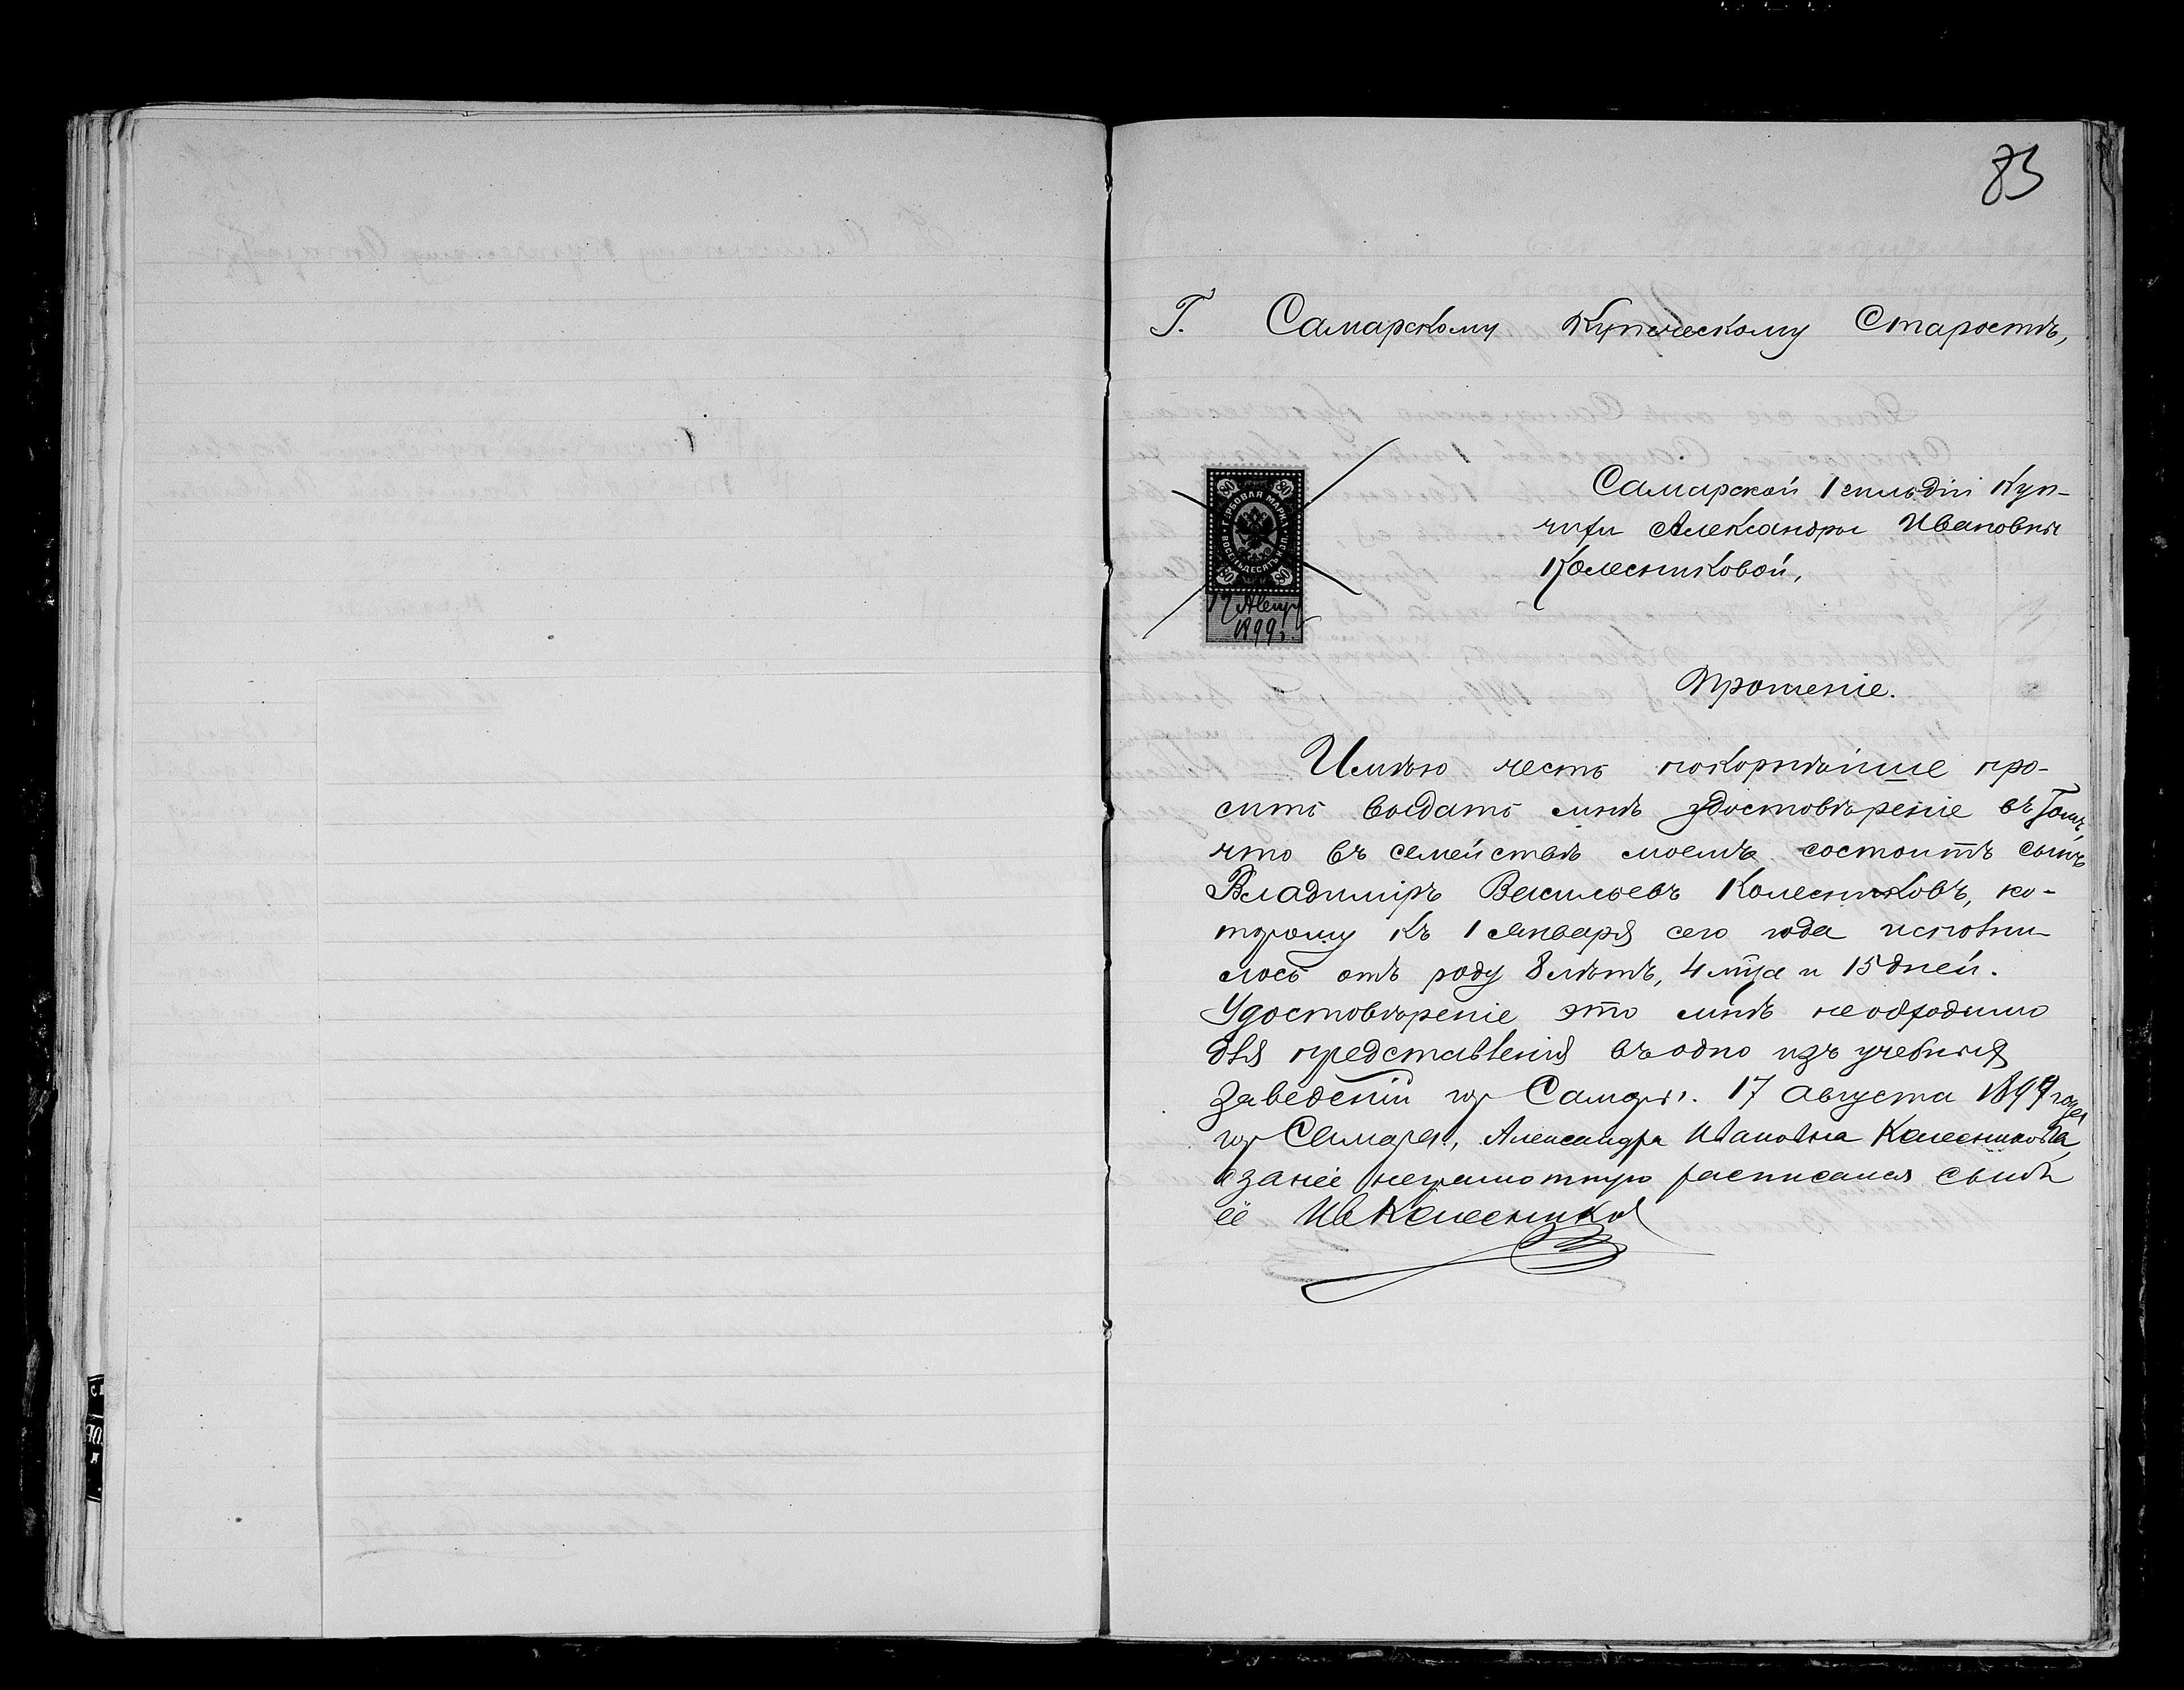 83
Г. Самарскому Купеческому Старостѣ,
Самарской 1 гильдіи Куп-
чихи Александры Ивановны
Колесниковой,
80 80
ГЕРБОВАЯ МАРКА
ВОСЕМЬДЕСЯТЪ КОП.
80 80
17 Авгу
1899 г.
Прошеніе.
Имѣю честь покорнѣйше про-
сить выдать мнѣ удостовѣреніе въ томъ,
что въ семействѣ моемъ состоитъ сынъ
Владиміръ Васильевъ Колесниковъ, ко-
торому къ 1 января сего года исполни-
лось отъ роду 8 лѣтъ, 4 мца и 15 дней.
Удостовѣреніе это мнѣ необходимо
для представленія въ одно изъ учебныхъ
заведеній гор Самары. 17 Августа 1899 года
гор Самара, Александра Ивановна Колесникова,
а за неё неграмотную расписался сынъ
её Ив Колесников